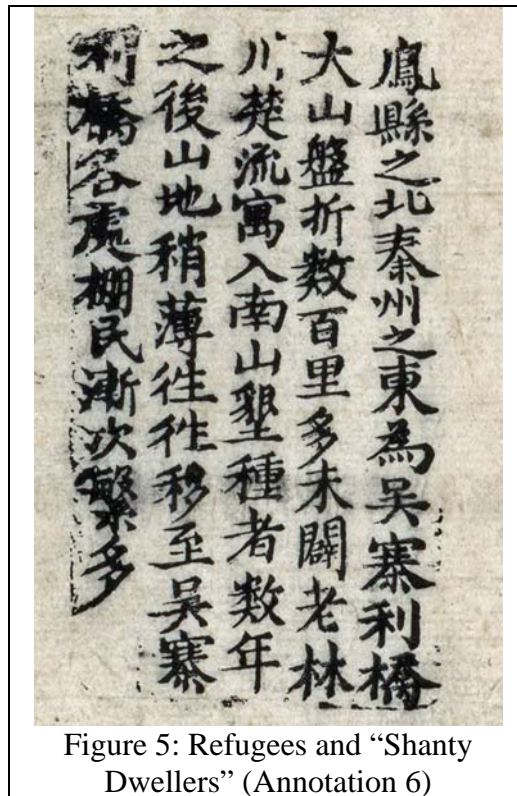 鳳縣之北秦州之東為吳寨利橋
大山盤折数百里多未闢老林
川楚流寓入南山墾種者数年
之後山地稍薄往往移至吳寨
利橋各處棚民漸次繁多
Figure 5: Refugees and “Shanty
Dwellers” (Annotation 6)